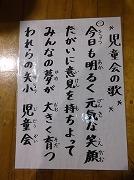 *児童会の歌*
今日も明るく元気な笑顔
たがいに意見を持ちよって
みんなの夢が大きく育つ
われらの矢小 児童会